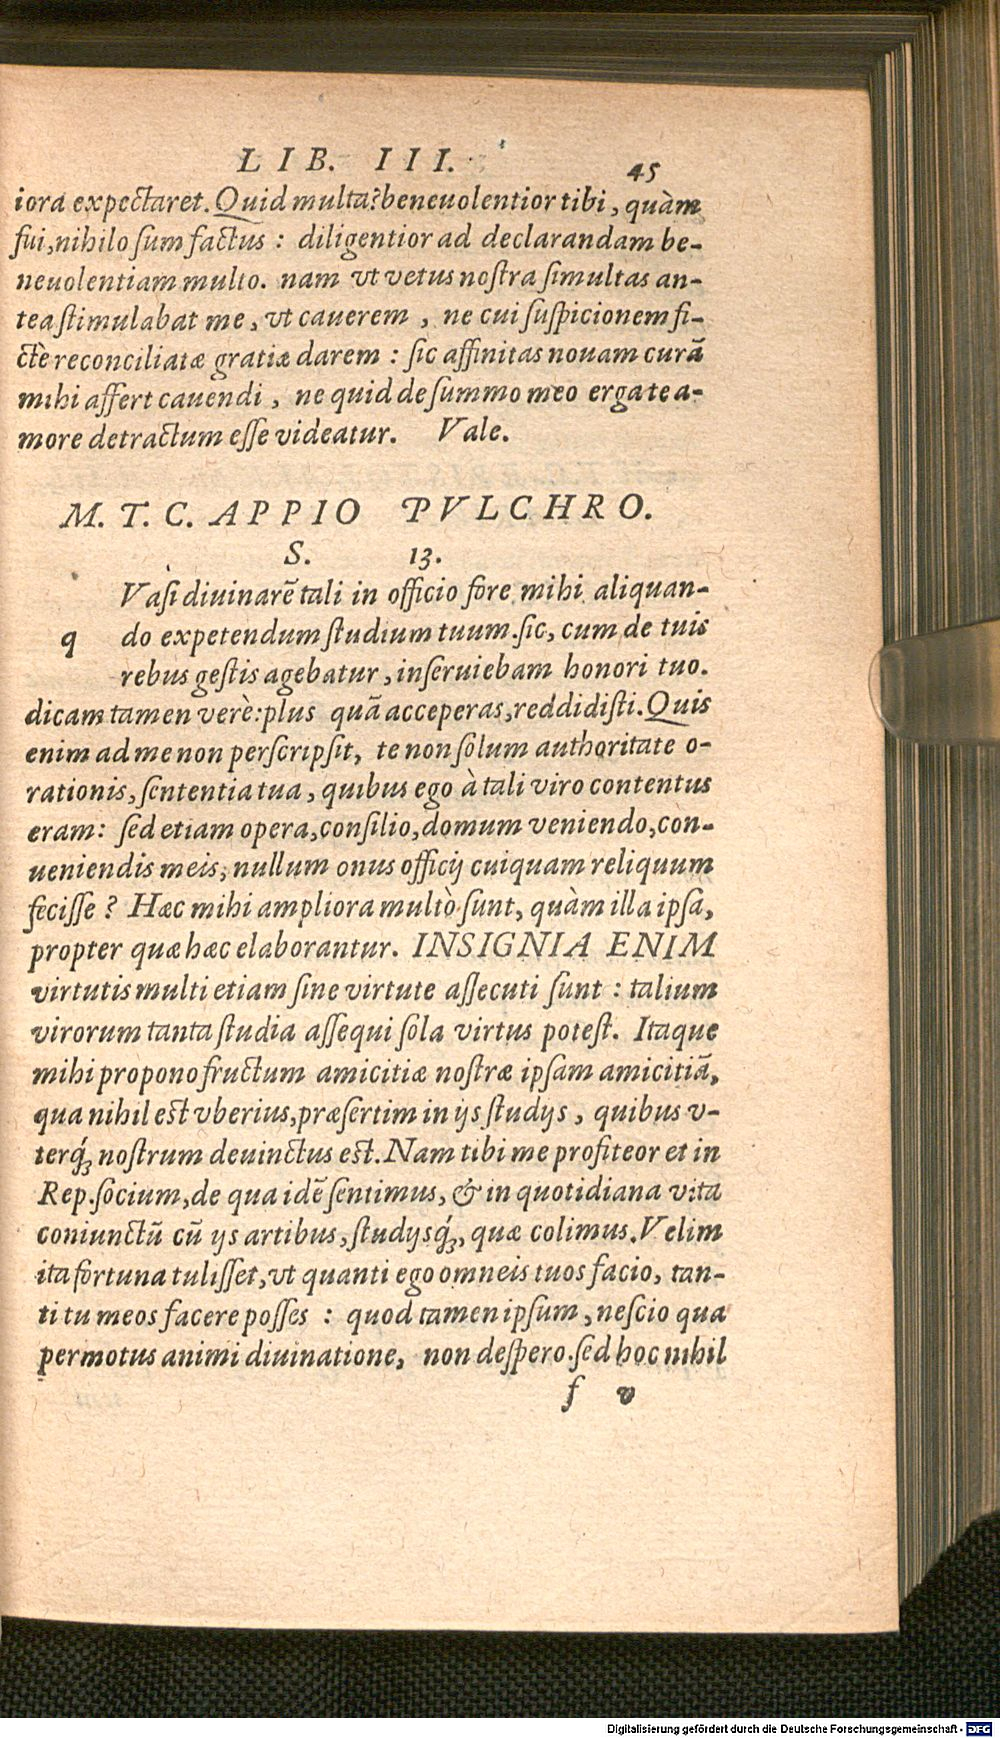 LIB. III. 45
iora expectaret. Quid multa? beneuolentior tibi, quàm
fui, nihilo sum factus : diligentior ad declarandam be-
neuolentiam multo. nam vt vetus nostra simultas an-
tea stimulabat me, vt cauerem , ne cui suspicionem fi-
ctè reconciliatæ gratiæ darem : sic affinitas nouam curã
mihi affert cauendi , ne quid de summo meo erga te a-
more detractum esse videatur. Vale.
M. T. C. APPIO PVLCHRO.
S. 13.
Vàsi diuinarẽ tali in officio fore mihi aliquan-
q do expetendum studium tuum. sic, cum de tuis
rebus gestis agebatur, inseruiebam honori tuo.
dicam tamen verè: plus quã acceperas, reddidisti. Quis
enim ad me non perscripsit, te non solum authoritate o-
rationis, sententia tua, quibus ego à tali viro contentus
eram: sed etiam opera, consilio, domum veniendo, con-
ueniendis meis, nullum onus officij cuiquam reliquum
fecisse ? Hæc mihi ampliora multò sunt, quàm illa ipsa,
propter quæ hæc elaborantur. INSIGNIA ENIM
virtutis multi etiam sine virtute assecuti sunt : talium
virorum tanta studia assequi sola virtus potest. Itaque
mihi propono fructum amicitiæ nostræ ipsam amicitiã,
qua nihil est vberius, præsertim in ijs studijs, quibus v-
terq́; nostrum deuinctus est. Nam tibi me profiteor et in
Rep. socium, de qua idẽ sentimus, & in quotidiana vita
coniunctũ cũ ijs artibus, studijsq́;, quæ colimus. Velim
ita fortuna tulisset, vt quanti ego omneis tuos facio, tan-
ti tu meos facere posses : quod tamen ipsum, nescio qua
permotus animi diuinatione, non despero. sed hoc nihil
f v
Digitalisierung gefördert durch die Deutsche Forschungsgemeinschaft - DFG